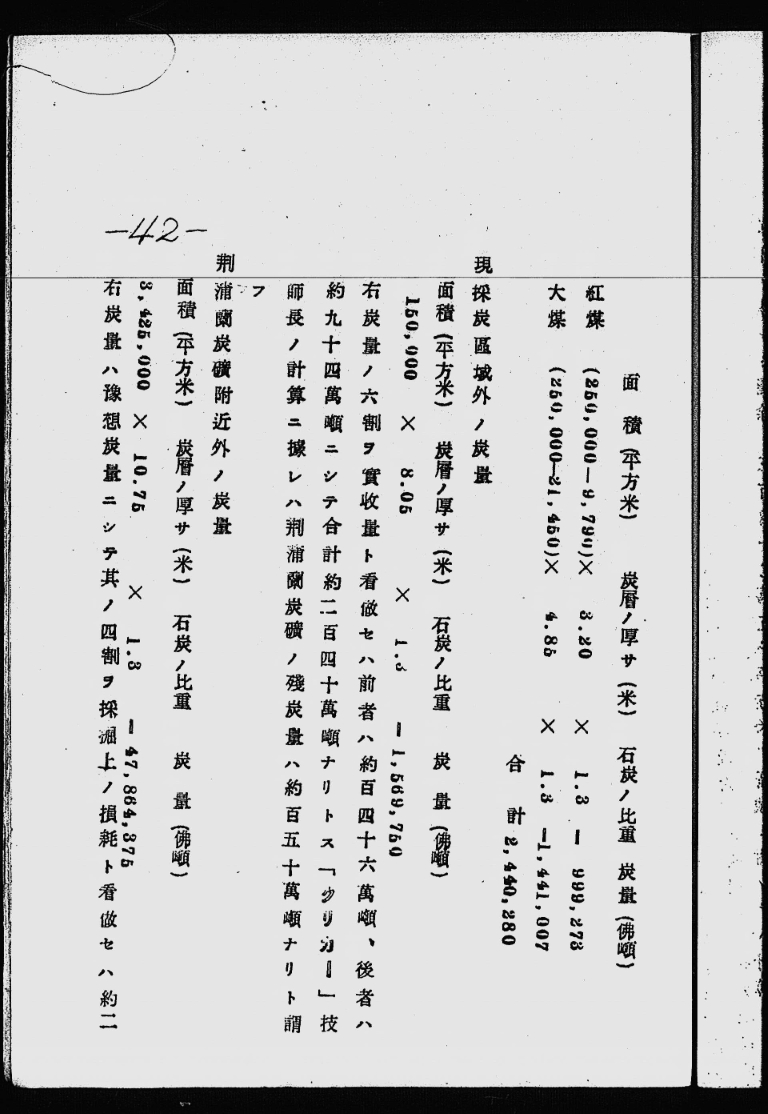 面積(平方米) 炭層ノ厚サ(米) 石炭ノ比重 炭量(佛噸)
紅煤 (250,000—9,790)× 3.20 × 1.3 — 999,273
大煤 (250,000—21,450)× 4.85 × 1.3 —1,441,007
合計 2,440,280
現採炭區域外ノ炭量
面積(平方米) 炭層ノ厚サ(米) 石炭ノ比重 炭量(佛噸)
150,000 × 8.05 × 1.3 — 1,569,750
右炭量ノ六割ヲ實收量ト看做セハ前者ハ約百四十六萬噸、後者ハ
約九十四萬噸ニシテ合計約二百四十萬噸ナリトス「クリカー」技
師長ノ計算ニ據レハ荆蒲蘭炭礦ノ殘炭量ハ約百五十萬噸ナリト謂
フ
荆蒲蘭炭礦附近外ノ炭量
面積(平方米) 炭層ノ厚サ(米) 石炭ノ比重 炭量(佛噸)
3,425,000 × 10.75 × 1.3 — 47,864,375
右炭量ハ豫想炭量ニシテ其ノ四割ヲ採掘上ノ損耗ト看做セハ約二
—42—